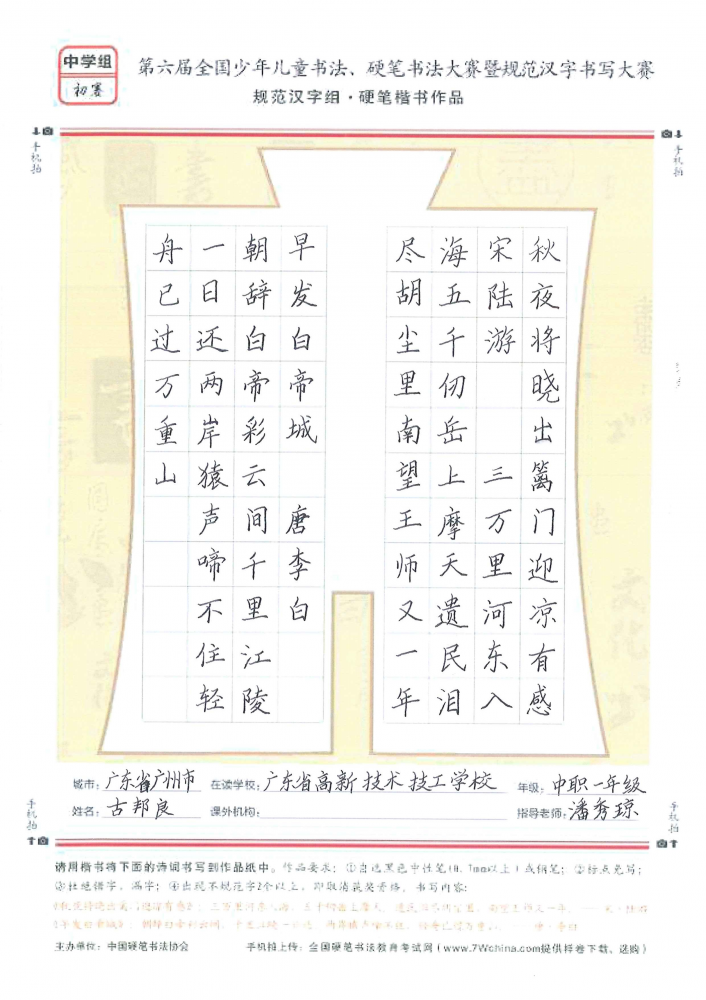 中学组
初赛
第六届全国少年儿童书法、硬笔书法大赛暨规范汉字书写大赛
规范汉字组·硬笔楷书作品
手机拍
手机拍
秋夜将晓出篱门迎凉有感
宋陆游 三万里河东入
海五千仞岳上摩天遗民泪
尽胡尘里南望王师又一年
早发白帝城 唐李白
朝辞白帝彩云间千里江陵
一日还两岸猿声啼不住轻
舟已过万重山
城市：广东省广州市 在读学校：广东省高新技术技工学校 年级：中职一年级
姓名：古邦良 课外机构： 指导老师：潘秀琼
手机拍
手机拍
请用楷书将下面的诗词书写到作品纸中。作品要求：①自选黑色中性笔(0.7mm以上)或钢笔；②标点免写；
③杜绝错字、漏字；④出现不规范字2个以上，即取消获奖资格。书写内容：
主办单位：中国硬笔书法协会 手机拍上传：全国硬笔书法教育考试网（www.7Wchina.com提供样卷下载、选购）